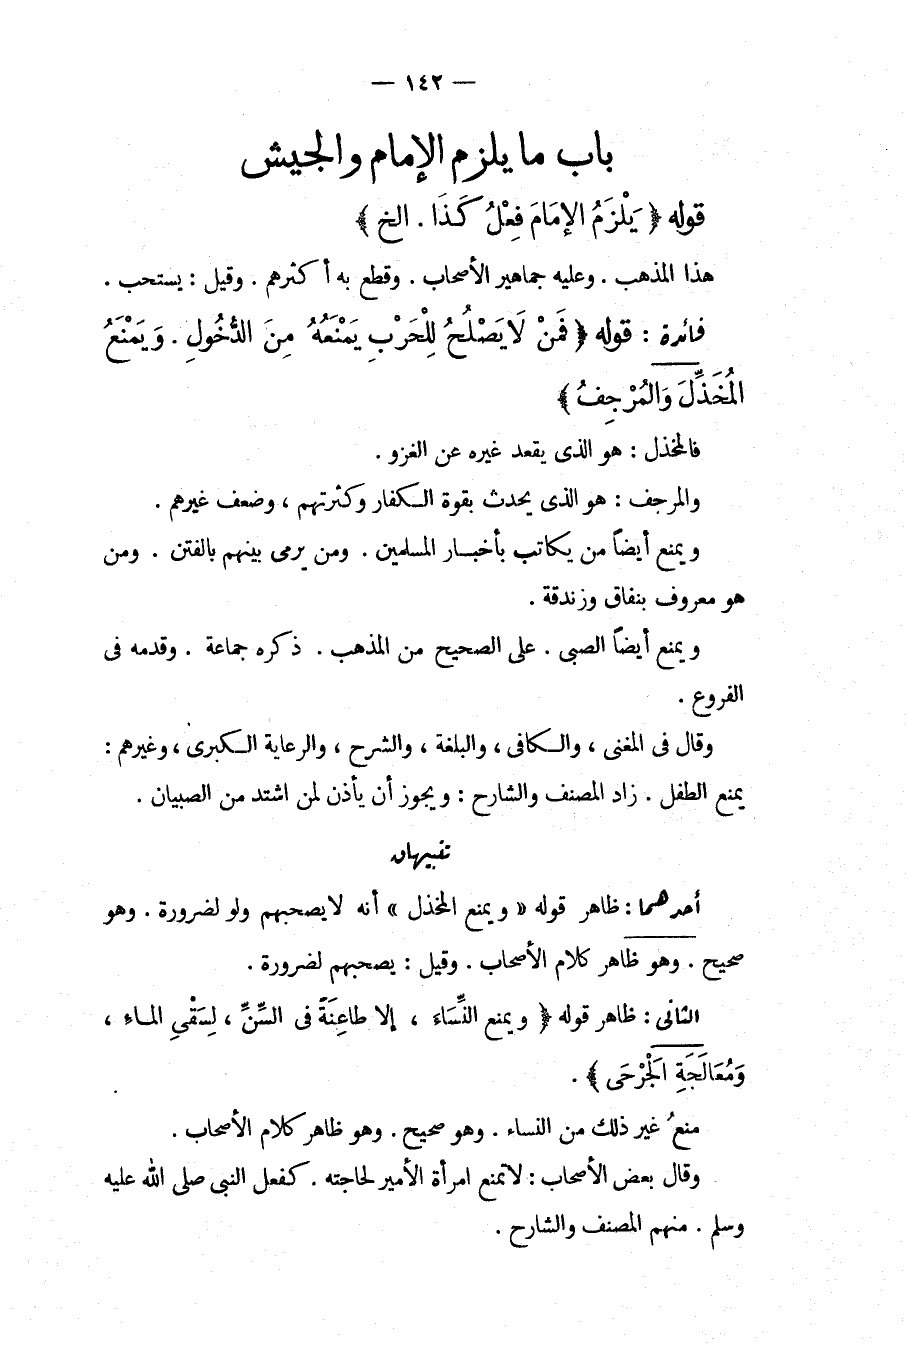 — ١٤٢ —
باب ما يلزم الإمام والجيش
قوله ﴿ يَلْزَمُ الإمَامَ فِعْلُ كَذَا . الخ ﴾
هذا المذهب . وعليه جماهير الأصحاب . وقطع به أكثرهم . وقيل : يستحب .
فائدة : قوله ﴿ فَمَنْ لَا يَصْلُحُ لِلْحَرْبِ يَمْنَعُهُ مِنَ الدُّخُولِ . وَيَمْنَعُ
المُخَذِّلَ وَالمُرْجِفُ ﴾
فالمخذل : هو الذى يقعد غيره عن الغزو .
والمرجف : هو الذى يحدث بقوة الكفار وكثرتهم ، وضعف غيرهم .
ويمنع أيضاً من يكاتب بأخبار المسلمين . ومن يرمى بينهم بالفتن . ومن
هو معروف بنفاق وزندقة .
ويمنع أيضاً الصبى . على الصحيح من المذهب . ذكره جماعة . وقدمه فى
الفروع .
وقال فى المغنى ، والكافى ، والبلغة ، والشرح ، والرعاية الكبرى ، وغيرهم :
يمنع الطفل . زاد المصنف والشارح : ويجوز أن يأذن لمن اشتد من الصبيان .
تنبيهان
أحدهما : ظاهر قوله « ويمنع المخذل » أنه لا يصحبهم ولو لضرورة . وهو
صحيح . وهو ظاهر كلام الأصحاب . وقيل : يصحبهم لضرورة .
الثانى : ظاهر قوله ﴿ ويمنع النِّسَاء ، إلا طاعِنَةً فى السِّنِّ ، لِسَقْيِ الماء ،
وَمُعَالَجَةِ الجَرْحَى ﴾ .
منعُ غير ذلك من النساء . وهو صحيح . وهو ظاهر كلام الأصحاب .
وقال بعض الأصحاب : لا تمنع امرأة الأمير لحاجته . كفعل النبى صلى الله عليه
وسلم . منهم المصنف والشارح .